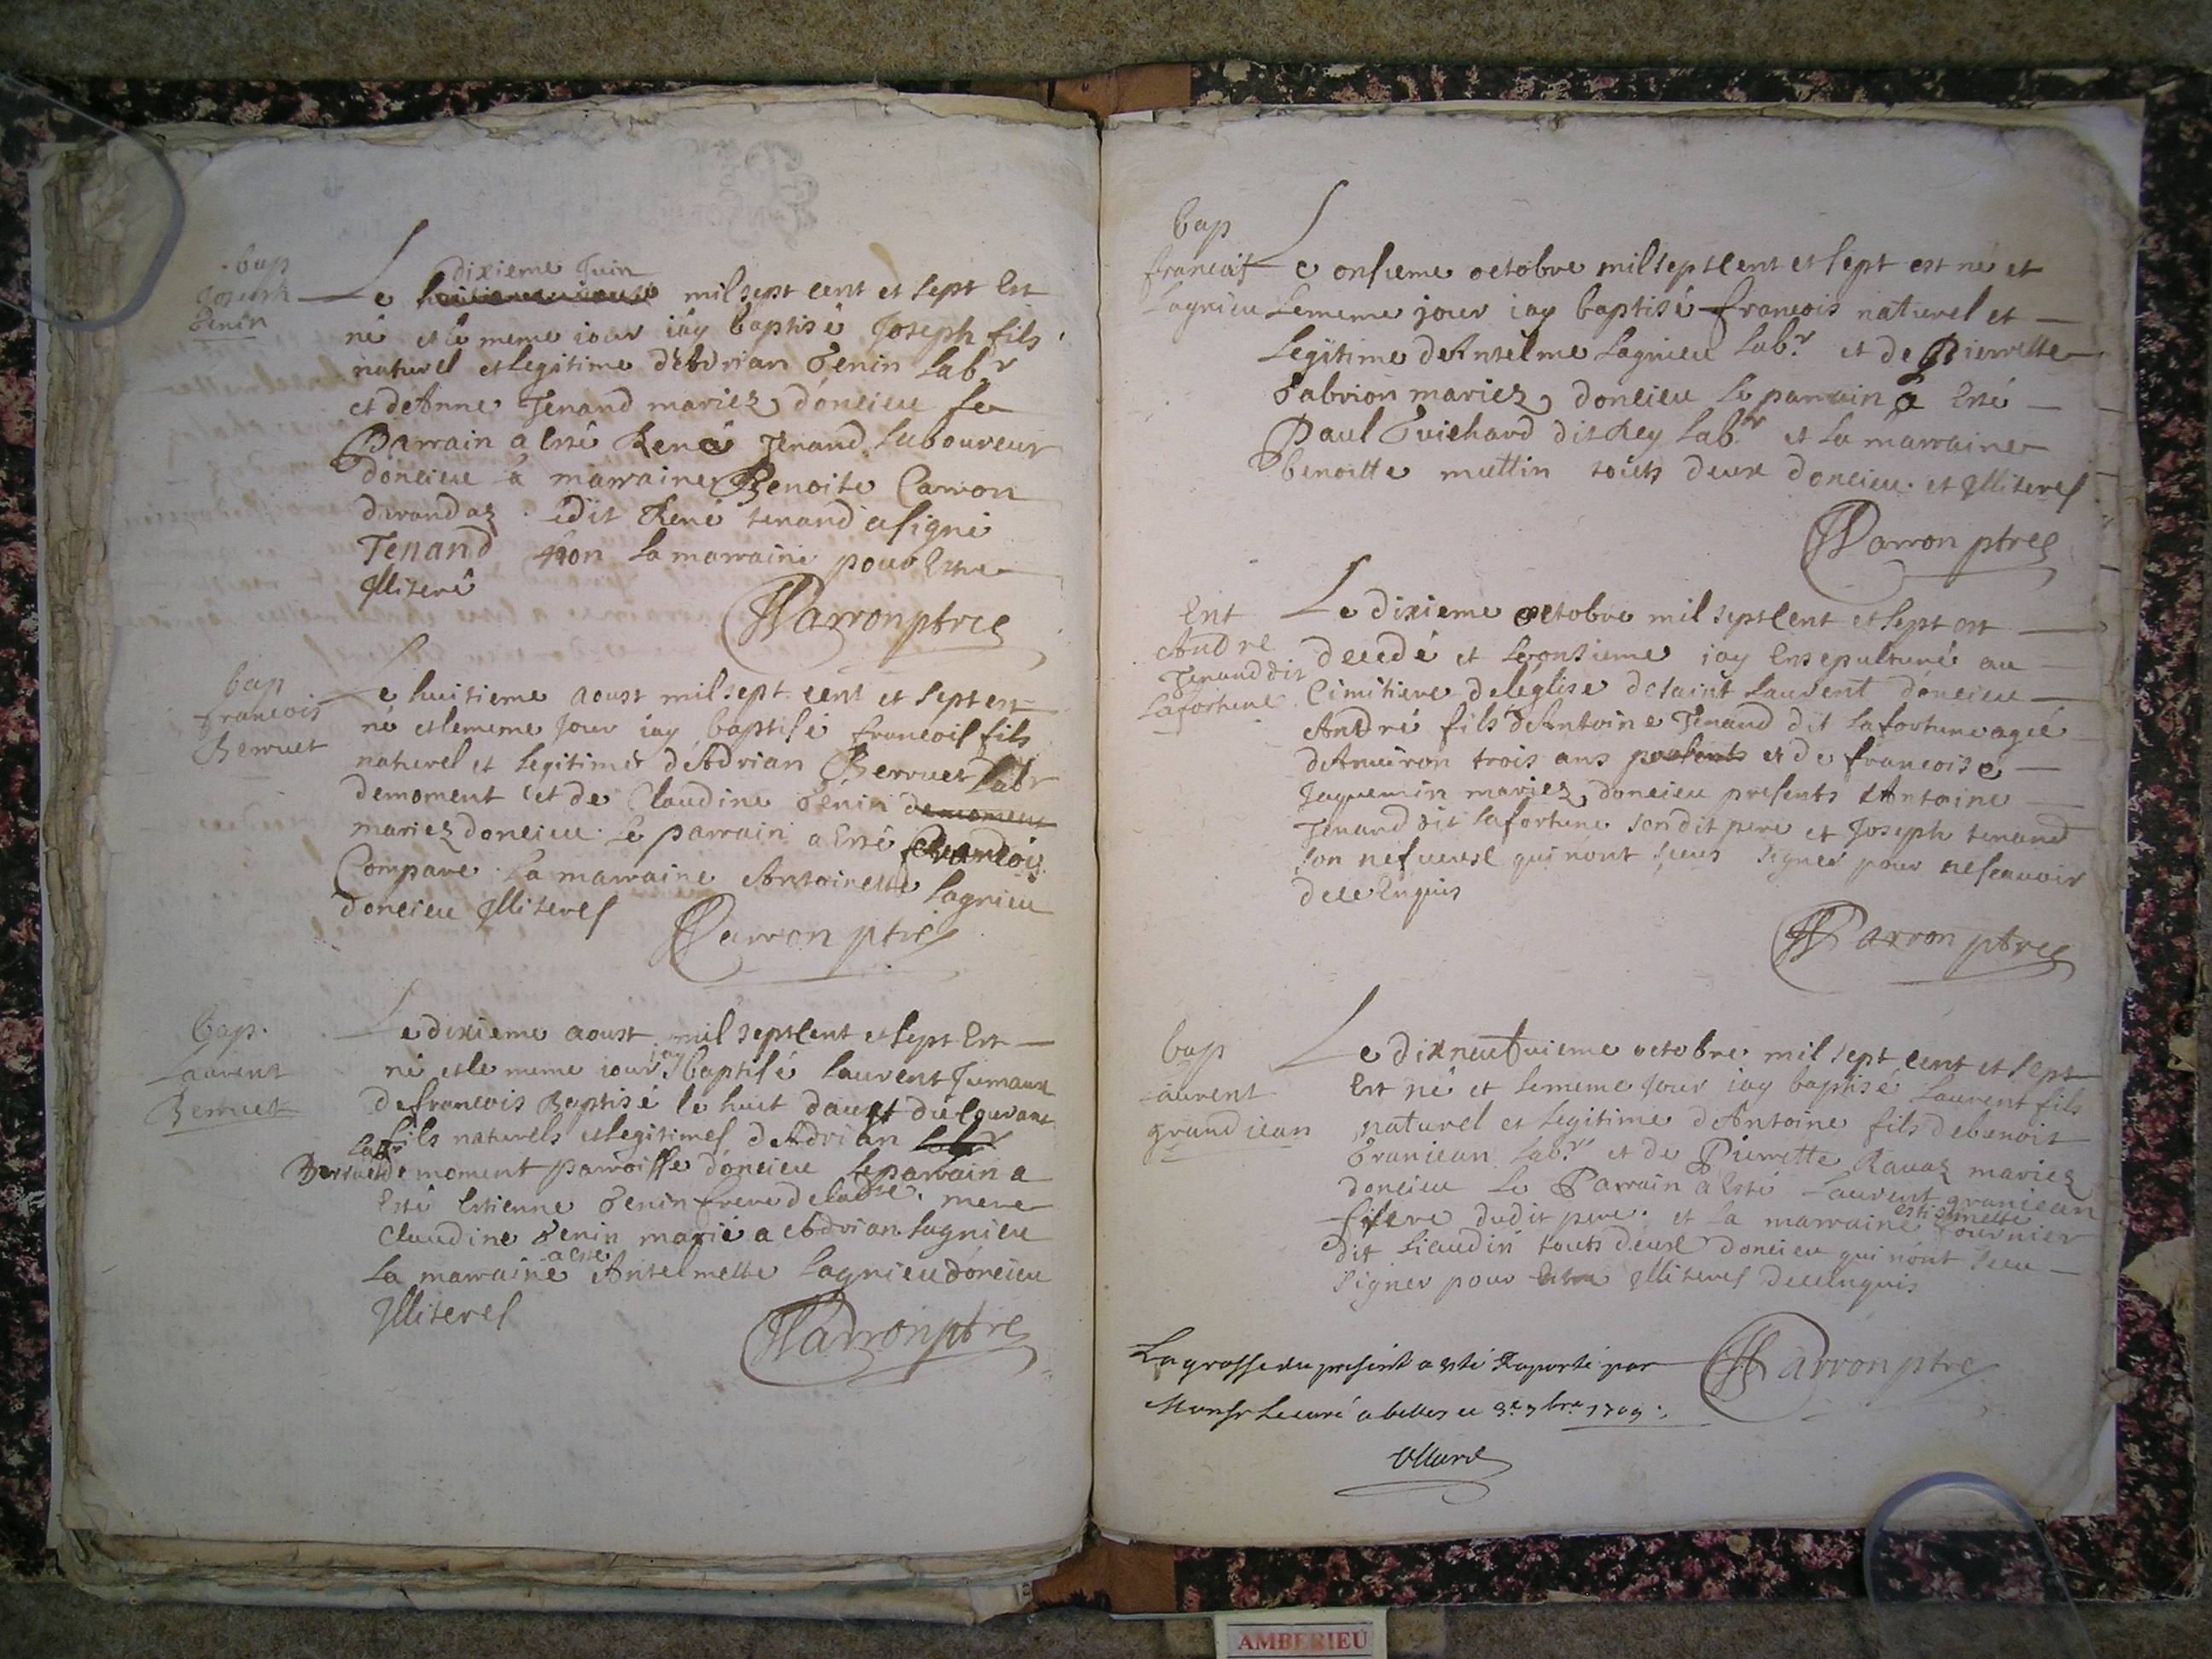 bap
Joseph
Genin
dixieme Juin
Le mil sept cent et sept Est
né et le meme iour iay baptisé Joseph fils
naturel et legitime d'Adrian Genin Labr
et de Anne Tenand mariez d'oncieu le
Parrain a Esté René Tenand Laboureur
doncieu la marraine Benoite Carron
dit René tenand a signé
Tenand non la marraine pour Estre
Illiteré
Parron ptre
bap
francois
Berruet
Le huitieme aoust mil sept cent et sept est
né et le meme Jour iay baptisé francois fils
naturel et legitime d'Adrian Berruet Labr
demoment et de Claudine Genin demoment
mariez doncieu. Le parrain a Esté francois
Compare. La marraine Antoinette Lagnieu
doncieu Illiteres
Parron ptre
bap.
Laurent
Berruet
Le dixieme aoust mil sept Cent et sept Est
né et le meme iour iay baptisé Laurent Jumaux
de francois Baptisé le huit daust du Courant
fils naturels et legitimes d'Adrian Labr
Labr
Berruet de moment parroisse d'oncieu Le parrain a
Esté Estienne Genin frere de ladte. mere
Claudine Genin marié a Adrian Lagnieu
La marraine a esté Antelmette Lagnieu d'oncieu
Illiteres
Parron ptre
bap
francois
Lagnieu
Le onsieme octobre mil sept Cent et sept est né et
Le meme jour iay baptisé francois naturel et
Legitime de Antelme Lagnieu Labr. et de Pierrette
Gabrion mariez doncieu Le parrain a Esté
Paul Guichard dit Rey Labr et La marraine
benoitte muttin touts deux doncieu. et Illiteres
Parron ptre
Ent
Andre
Tenand dit
Lafortune
Le dixieme octobre mil sept Cent et sept est
decedé et Le onsieme iay Ensepulturé au
Cimitiere de leglise de saint Laurent d'oncieu
André fils d'Antoine Tenand dit Lafortune agée
d'Enuiron trois ans presents et de francoise
Jaquemin mariez doncieu presents Antoine
Tenand dit Lafortune son dit pere et Joseph tenand
son nefueux qui nont sceus signer pour ne scauoir
de ce Enquis
Parron ptre
bap
Laurent
grand iean
Le dix neufuieme octobre mil sept cent et sept
Est né et le meme Jour iay baptisé Laurent fils
naturel et legitime d'Antoine fils de benoit
Graniean Labr. et de Pierrette Rauaz mariez
doncieu Le Parrain a Esté Laurent graniean
frere dudit pere. et la marraine estiennette fournier
dit Liaudin touts deux doncieu qui nont sceu
signer pour Estre Illiteres de ce enquis
Parron ptre
La grosse du present a esté Raporté par
Monsr Le curé a belley ce 3e 7bre 1709.
AMBERIEU